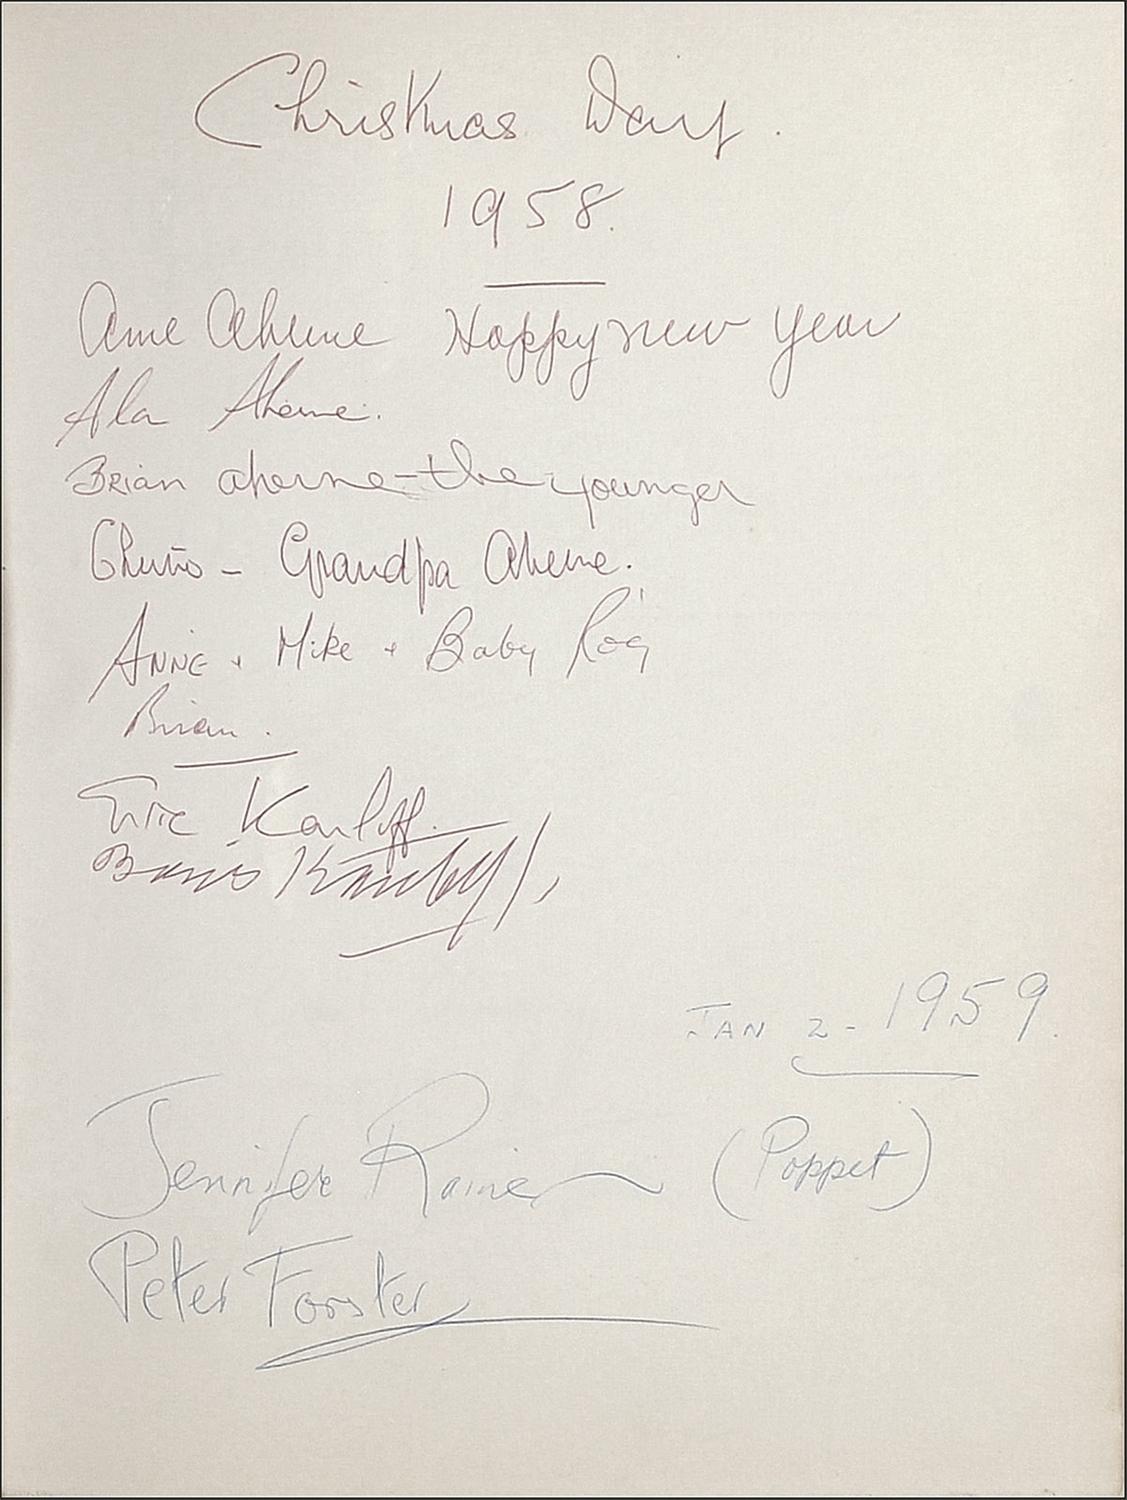 Christmas Day.
1958.
Anne Aherne Happy new year
Ala Aherne.
Brian aherne - the younger
- Grandpa Aherne.
ANNE + Mike + Baby
Brian.
Evie Karloff.
Boris Karloff
JAN 2 - 1959.
Jennifer Raine (Poppet)
Peter Forster